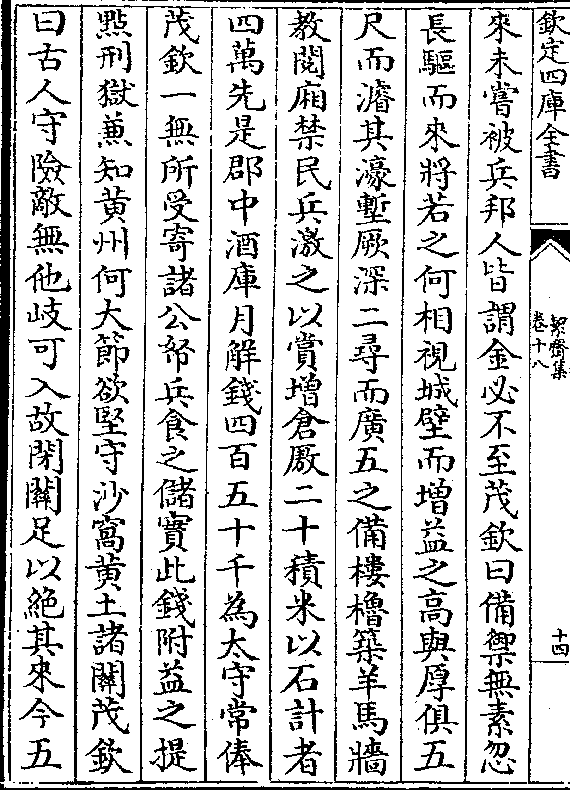 欽定四庫全書
絜齋集
卷十八
十四
來未嘗被兵邦人皆謂金必不至茂欽曰備禦無素忽
長驅而來將若之何相視城壁而增益之髙與厚俱五
尺而濬其濠塹厥深二尋而廣五之備樓櫓築羊馬牆
教閱廂禁民兵激之以賞增倉厫二十積米以石計者
四萬先是郡中酒庫月解錢四百五十千為太守常俸
茂欽一無所受寄諸公帑兵食之儲實此錢附益之提
㸃刑獄兼知黄州何大節欲堅守沙窩黄土諸關茂欽
曰古人守險敵無他岐可入故閉關足以絶其來今五